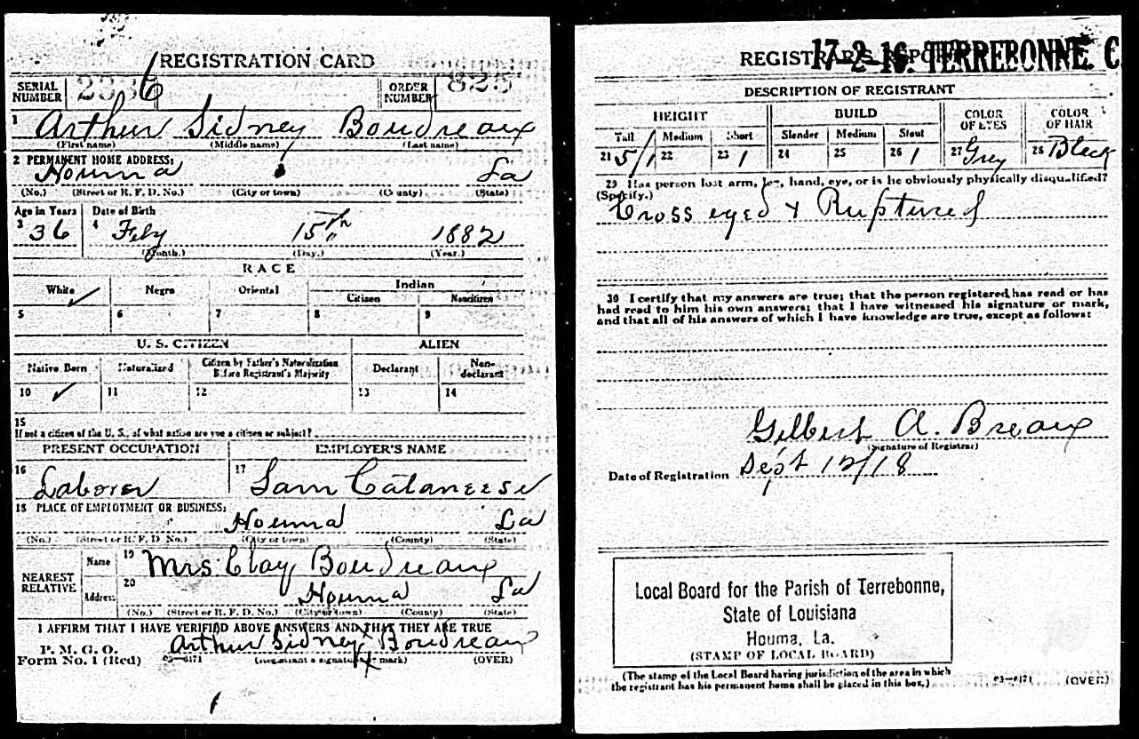 REGISTRATION CARD
SERIAL NUMBER 2236 ORDER NUMBER 825
1 Arthur Sidney Boudreaux
(First name) (Middle name) (Last name)
2 PERMANENT HOME ADDRESS:
Houma La
(No.) (Street or R. F. D. No.) (City or town) (County) (State)
Age in Years Date of Birth
3 36 4 Feby 15th 1882
(Month.) (Day.) (Year.)
RACE
White Negro Oriental Indian
Citizen Noncitizen
5 ✓ 6 7 8 9
U. S. CITIZEN ALIEN
Native Born Naturalized Citizen by Father's Naturalization Before Registrant's Majority Declarant Non-declarant
10 ✓ 11 12 13 14
15
If not a citizen of the U. S., of what nation are you a citizen or subject?
PRESENT OCCUPATION EMPLOYER'S NAME
16 Laborer 17 Sam Cataneese
18 PLACE OF EMPLOYMENT OR BUSINESS:
Houma La
(No.) (Street or R. F. D. No.) (City or town) (County) (State)
NEAREST RELATIVE Name 19 Mrs Clay Boudreaux
Address 20 Houma La
(No.) (Street or R. F. D. No.) (City or town) (County) (State)
I AFFIRM THAT I HAVE VERIFIED ABOVE ANSWERS AND THAT THEY ARE TRUE
P. M. G. O.
Form No. 1 (Red) 03-6171 Arthur Sidney X Boudreaux
(Registrant's signature or mark) (OVER)
REGISTRAR'S REPORT 17-2-16. TERREBONNE. C
DESCRIPTION OF REGISTRANT
HEIGHT BUILD COLOR OF EYES COLOR OF HAIR
Tall Medium Short Slender Medium Stout
21 5/1 22 23 1 24 25 26 1 27 Grey 28 Black
29 Has person lost arm, leg, hand, eye, or is he obviously physically disqualified?
(Specify.)
Cross eyed & Ruptured
30 I certify that my answers are true; that the person registered has read or has
had read to him his own answers; that I have witnessed his signature or mark,
and that all of his answers of which I have knowledge are true, except as follows:
Gilbert A. Breaux
(Signature of Registrar)
Date of Registration Sept 12/18
Local Board for the Parish of Terrebonne,
State of Louisiana
Houma, La.
(STAMP OF LOCAL BOARD)
(The stamp of the Local Board having jurisdiction of the area in which
the registrant has his permanent home shall be placed in this box.)
03-6171 (OVER)